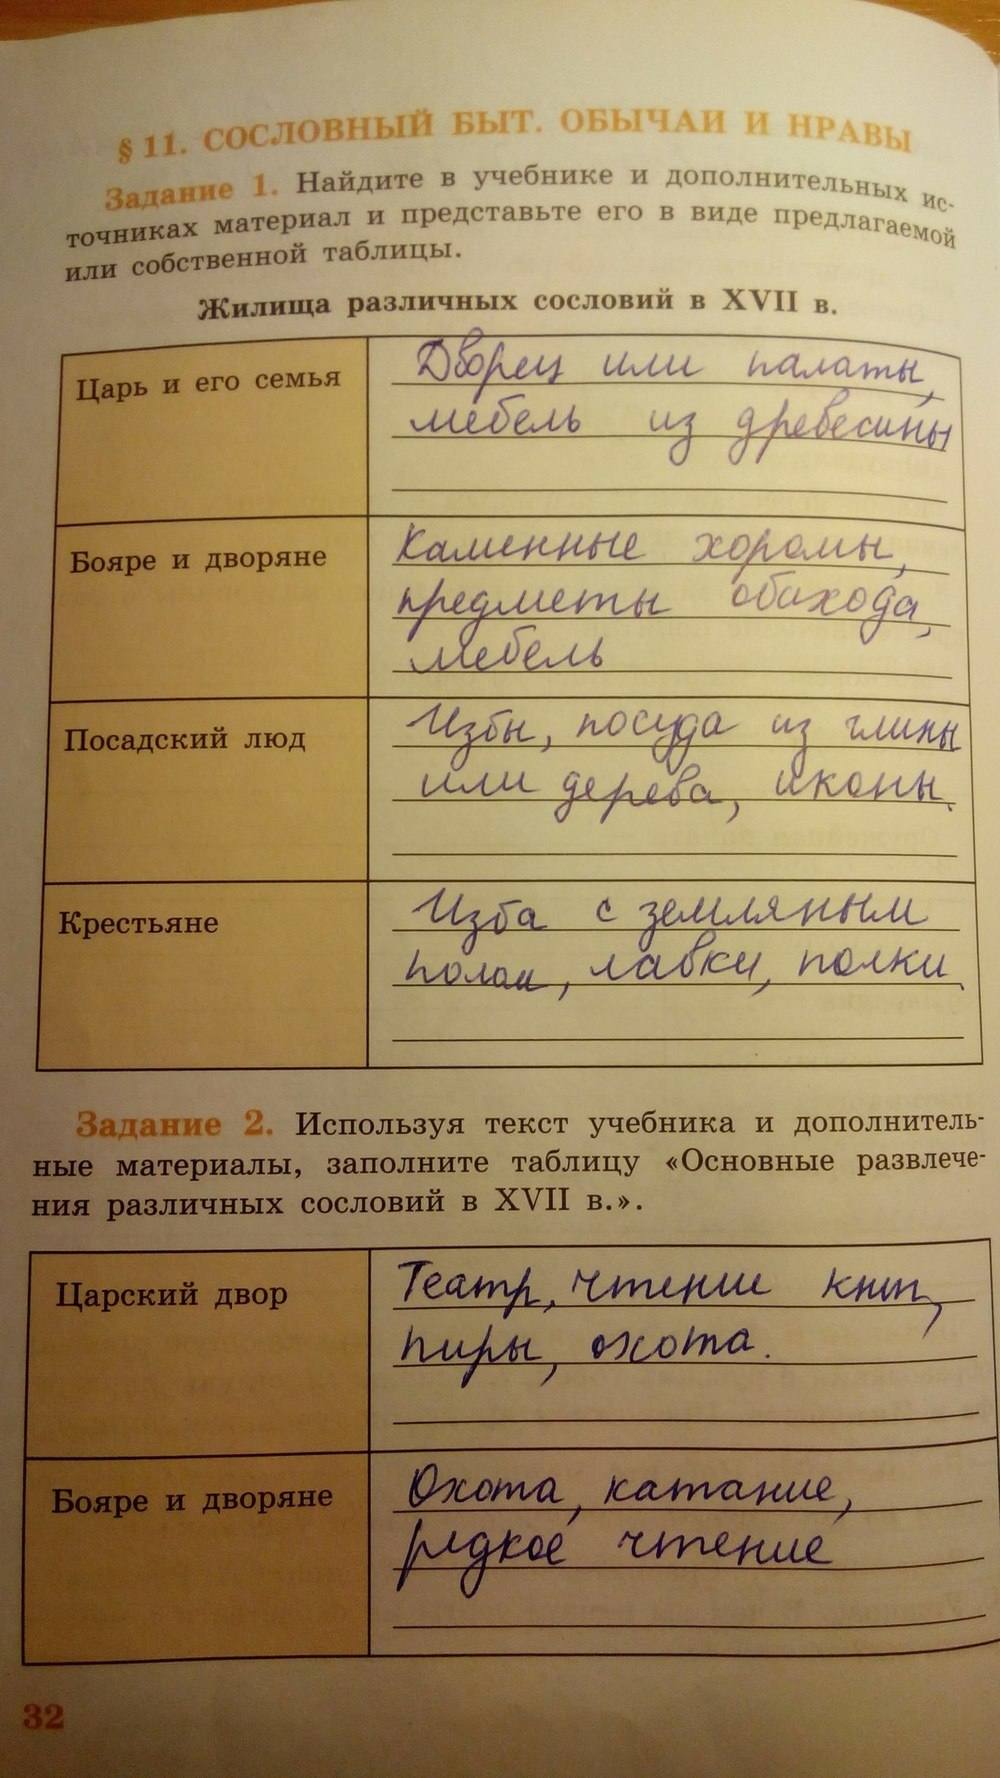 § 11. СОСЛОВНЫЙ БЫТ. ОБЫЧАИ И НРАВЫ
Задание 1. Найдите в учебнике и дополнительных ис-
точниках материал и представьте его в виде предлагаемой
или собственной таблицы.
Жилища различных сословий в XVII в.
Царь и его семья
Дворец или палаты,
мебель из древесины
Бояре и дворяне
Каменные хоромы,
предметы обихода,
мебель
Посадский люд
Избы, посуда из глины
или дерева, иконы.
Крестьяне
Изба с земляным
полом, лавки, полки.
Задание 2. Используя текст учебника и дополнитель-
ные материалы, заполните таблицу «Основные развлече-
ния различных сословий в XVII в.».
Царский двор
Театр, чтение книг,
пиры, охота.
Бояре и дворяне
Охота, катание,
редкое чтение
32